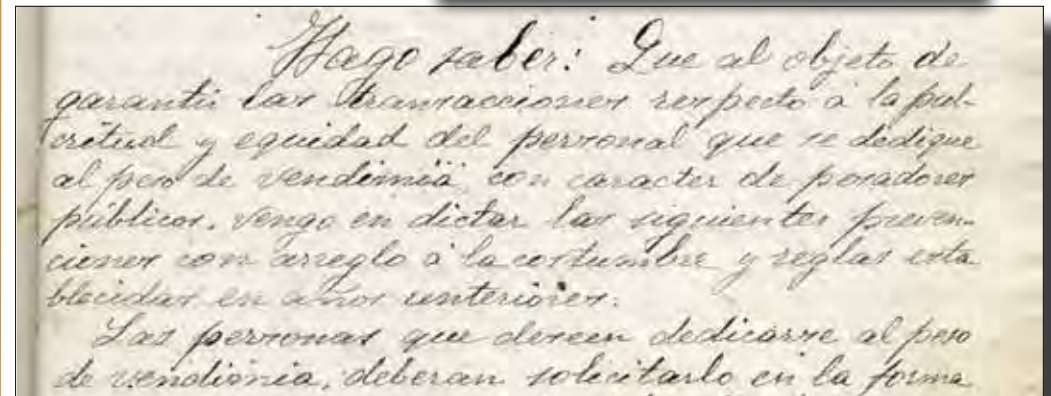 Hago saber: Que al objeto de
garantir las transacciones respecto á la pul-
critud y equidad del personal que se dedique
al peso de vendimia, con caracter de pesadores
públicos, vengo en dictar las siguientes preven-
ciones con arreglo á la costumbre y reglas esta
blecidas en años anteriores.
Las personas que deseen dedicarse al peso
de vendimia, deberan solicitarlo en la forma